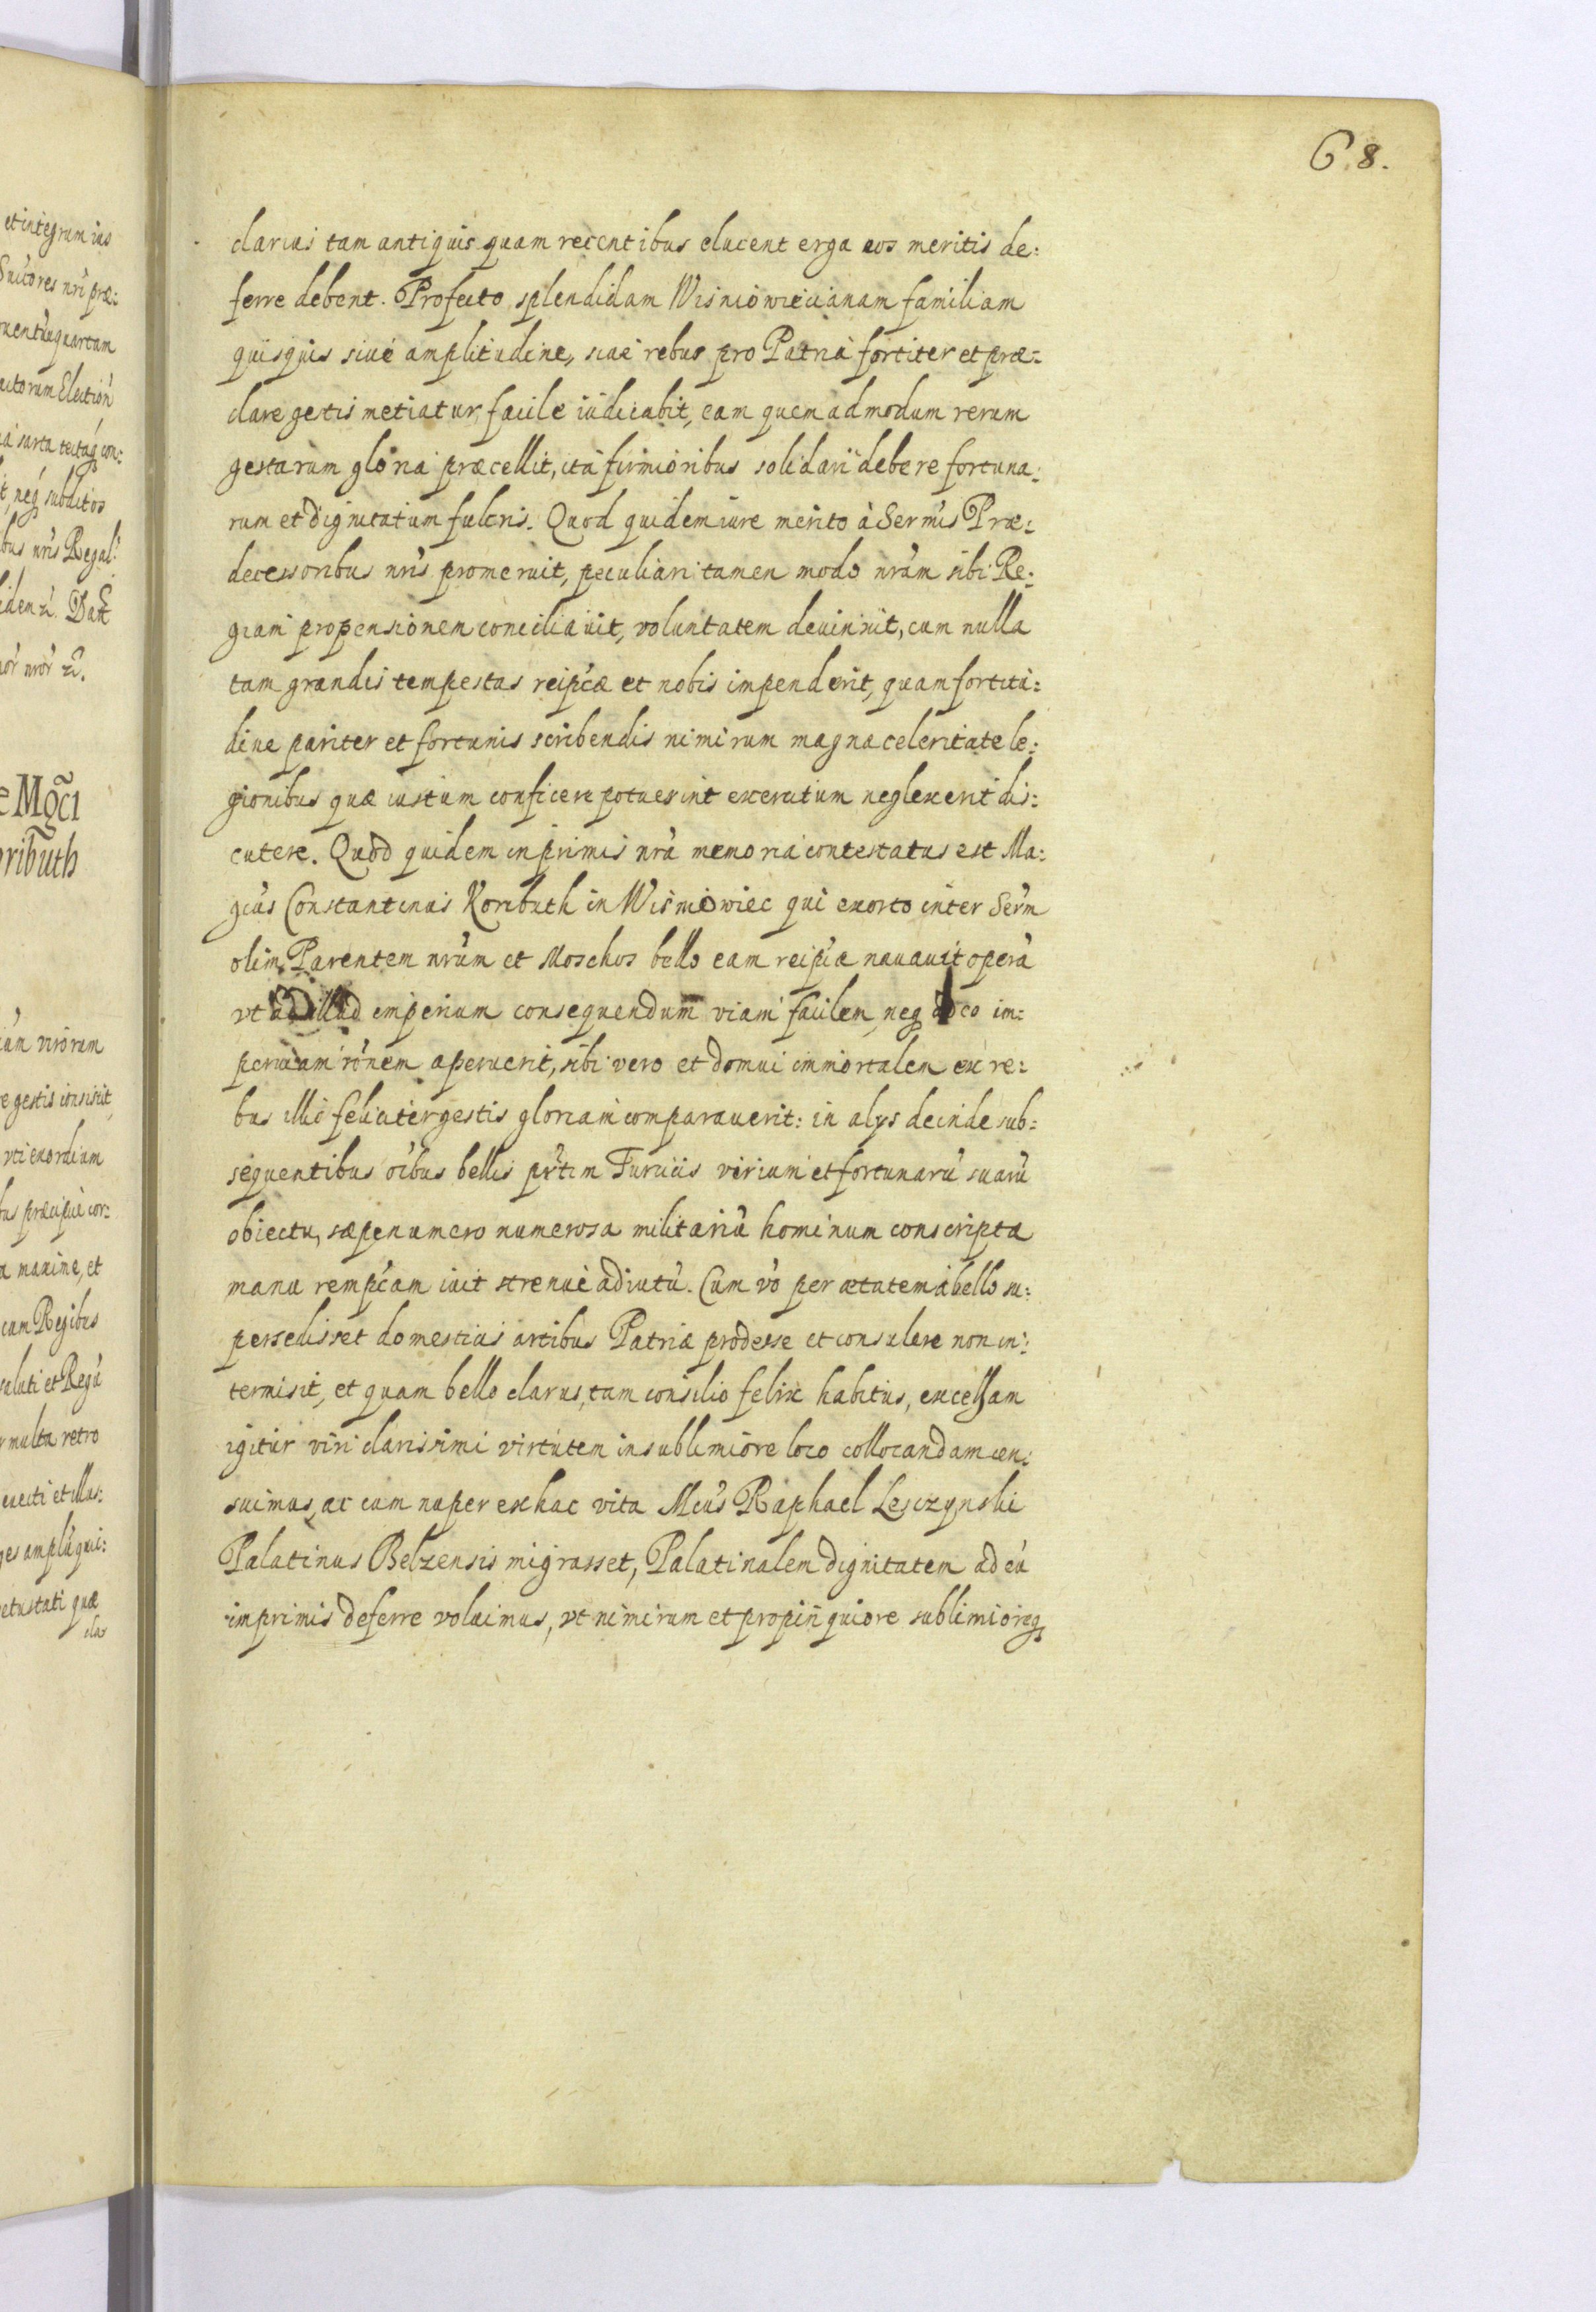 68.
clarius tam antiquis quam recentibus elucent erga eos meritis de:
ferre debent. Profecto splendidam Wisniowiecianam familiam
quisquis siué amplitudine, siue rebus pro Patria fortiter et præ:
clare gestis metiatur, facile iudicabit, eam quemadmodum rerum
gestarum gloria præcellit, ita firmioribus solidari debere fortuna:
rum et dignitatum fulcris. Quod quidem iure merito à Sermis Præ:
decessoribus nris promeruit, peculiari tamen modo nram sibi Re:
giam propensionem conciliauit, voluntatem deuinxit, cum nulla
tam grandis tempestas reipcæ et nobis impenderit, quam fortitu:
dine pariter et fortunis scribendis nimirum magna celeritate le:
gionibus quæ iustum conficere potuerint exercitum neglexerit dis:
cutere. Quod quidem inprimis nra memoria contestatus est Ma:
gcus Constantinus Koributh in Wisniowiec qui exorto inter Serm
olim Parentem nrum et Moschos bello eam reipcæ nauauit operâ
vt ad illud imperium consequendum viam facilem, neq adeo im:
peruiam ronem aperuerit, sibi vero et domui immortalem ex re:
bus illic feliciter gestis gloriam comparauerit: in alys deinde sub:
sequentibus oibus bellis prtim Turcicis virium et fortunarũ suarũ
obiectu, sæpenumero numerosa militariũ hominum conscripta
manu rempcam iuit strenuè adiutũ. Cum vo per ætatem à bello su:
persedisset domesticis artibus Patriæ prodesse et consulere non in:
termisit, et quam bello clarus, tam consilio felix habitus, excelsam
igitur viri clarissimi virtutem in sublimiore loco collocandam cen:
suimus, ac cum nuper ex hac vita Mcus Raphael Lesczynski
Palatinus Belzensis migrasset, Palatinalem dignitatem ad eũ
imprimis deferre voluimus, vt nimirum et propinquiore sublimioreq